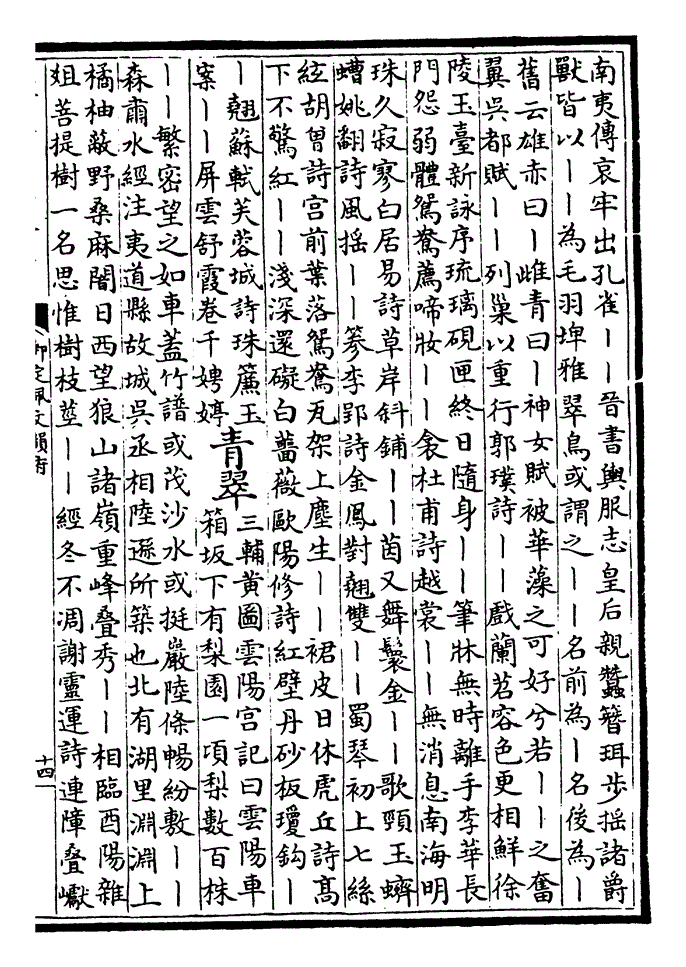 南夷傳哀牢出孔雀丨丨晉書輿服志皇后親蠶簪珥步揺諸爵
獸皆以丨丨為毛羽埤雅翠鳥或謂之丨丨名前為丨名後為丨
舊云雄赤曰丨雌青曰丨神女賦被華藻之可好兮若丨丨之奮
翼吳都賦丨丨列巢以重行郭璞詩丨丨戲蘭苕容色更相鮮徐
陵玉臺新詠序琉璃硯匣終日隨身丨丨筆牀無時離手李華長
門怨弱體鴛鴦薦啼妝丨丨衾杜甫詩越裳丨丨無消息南海明
珠久寂寥白居易詩草岸斜鋪丨丨茵又舞鬟金丨丨歌頸玉蠐
螬姚翻詩風揺丨丨篸李郢詩金鳳對翹雙丨丨蜀琴初上七絲
絃胡曾詩宫前葉落鴛鴦瓦架上塵生丨丨裙皮日休虎丘詩髙
下不驚紅丨丨淺深還礙白薔薇歐陽修詩紅壁丹砂板瓊鈎丨
丨翹蘇軾芙蓉城詩珠簾玉
案丨丨屏雲舒霞卷千娉婷
青翠
三輔黄圖雲陽宫記曰雲陽車
箱坂下有梨園一頃梨數百株
丨丨繁密望之如車蓋竹譜或茂沙水或挺巖陸條暢紛敷丨丨
森肅水經注夷道縣故城吳丞相陸遜所築也北有湖里淵淵上
橘柚蔽野桑麻闇日西望狼山諸嶺重峰叠秀丨丨相臨酉陽雜
俎菩提樹一名思惟樹枝莖丨丨經冬不凋謝靈運詩連障叠巘
御定佩文韻府
十四